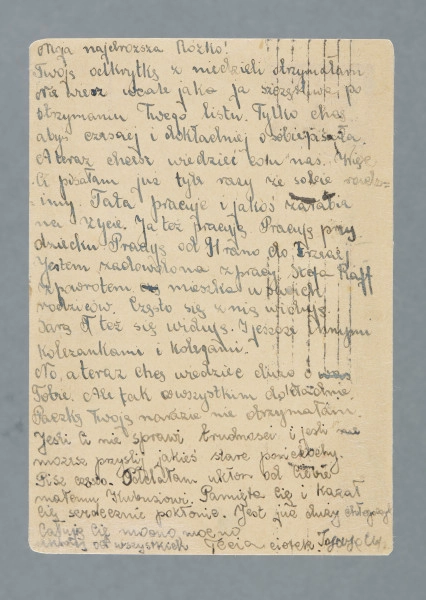 Moja najdroższa Rózko!
Twoją odkrytkę z niedzieli otrzymałam
Nie wiesz wcale jaka ja szczęśliwa po
otrzymaniu Twego listu. Tylko chcę
abyś częściej i dokładniej o sobie pisała.
A teraz chcesz wiedzieć co u nas. Więc
Ci pisałam już tyle razy że sobie
Tata pracuje i jakoś zarabia
na życie. Ja też pracuję. Pracuję przy
dziecku Pracuję od 9 rano do
Jestem zadowolona z pracy. Stefa Raff
z powrotem mieszka u swoich
rodziców. Często się z nią widuję.
Sarą F też się widuję. I jeszcze z innymi
koleżankami i kolegami.
No, a teraz chcę wiedzieć dużo o
Tobie. Ale tak o wszystkim dokładnie.
Paczkę Twoją narazie nie otrzymałam.
Jeśli Ci nie sprawi trudności i jeśli
możesz przyślij jakieś stare pończochy.
Pisz często. Oddałam ukłon od Ciebie
małemu Kubusiowi. Pamięta Cię i kazał
Cię serdecznie pokłonić. Jest już duży chłopczyk
Całuję Cię mocno mocno
od wszystkich ciotek.